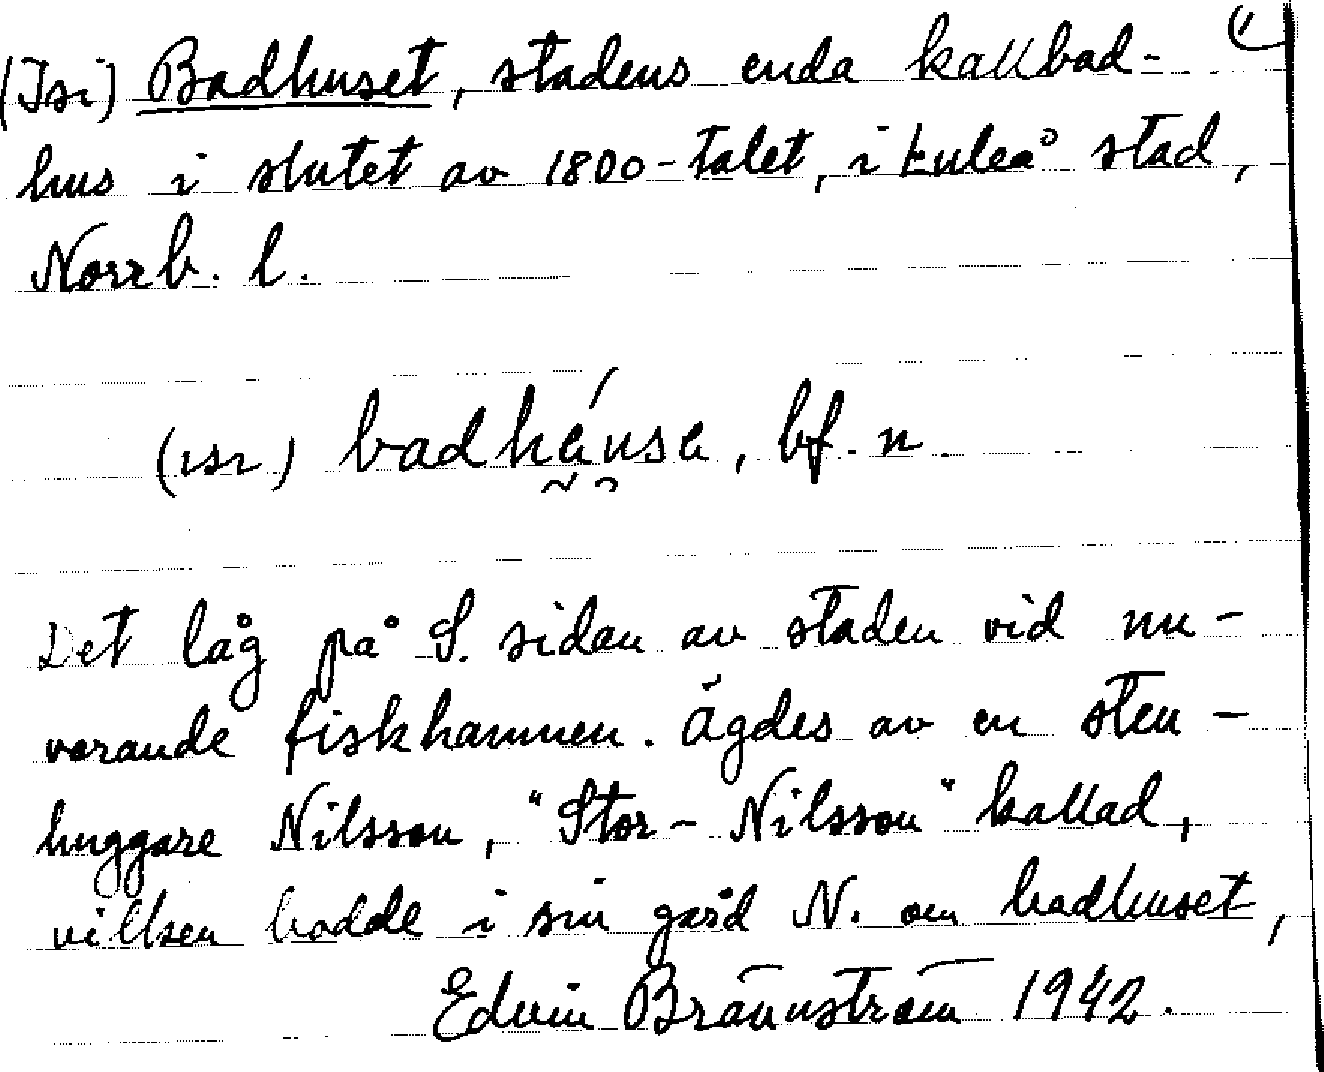 (Isi) Badhuset, stadens enda kallbad-
hus i slutet av 1800-talet, i Luleå stad,
Norrb. l.
(ısı) badhḛ́ṵsa, bf. n
Det låg på S. sidan av staden vid nu-
varande fiskhamnen. Ägdes av en sten-
huggare Nilsson, "Stor-Nilsson" kallad,
vilken bodde i sin gård N. om badhuset,
Edvin Brännström 1942.